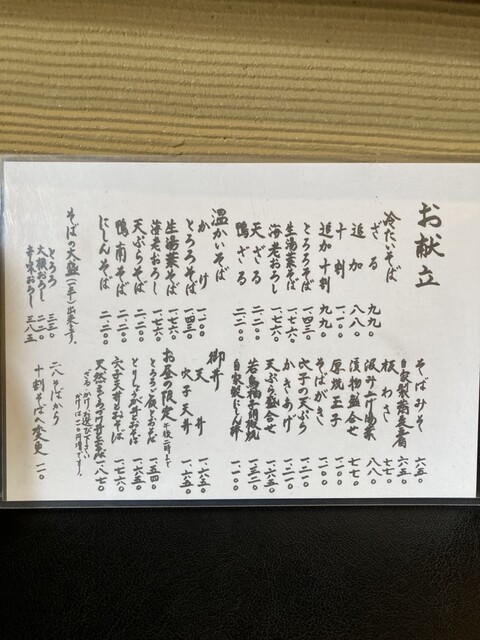 お献立
冷たいそば
ざる 九九〇
追加 八八〇
十割 一一〇〇
追加十割 九九〇
とろろそば 一四三〇
生湯葉そば 一七六〇
海老おろし 一七六〇
天ざる 二二〇〇
鴨ざる 二二〇〇
温かいそば
かけ 一一〇〇
とろろそば 一四三〇
生湯葉そば 一七六〇
海老おろし 一七六〇
天ぷらそば 二二〇〇
鴨南そば 二二〇〇
にしんそば 二二〇〇
そばの大盛(1.5)出来ます。
とろろ 三三〇
大根おろし 二二〇
辛味おろし 三八五
そばみそ 六五〇
自家製 六五〇
板わさ 七七〇
汲み上げ湯葉 八八〇
漬物盛合せ 七七〇
厚焼玉子 一一〇〇
そばがき 一二一〇
穴子の天ぷら
かきあげ 一二一〇
天ぷら盛合せ 一六五〇
若鳥柚子胡椒焼 一三二〇
自家製にしん丼 一一〇〇
御丼
天丼 一六五〇
穴子天丼 一六五〇
お昼の限定 午後二時まで
とろろご飯とおそば 一五四〇
とりしょうが丼とおそば 一六五〇
穴子天丼とおそば 一七六〇
天然まぐろづけ丼とおそば 一八七〇
ざる・かけお選び下さい
かけは一一〇円増です。
二八そばから
十割そばへ変更 一一〇